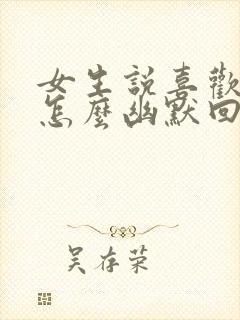 女生說喜歡
怎麼幽默回
吳存榮